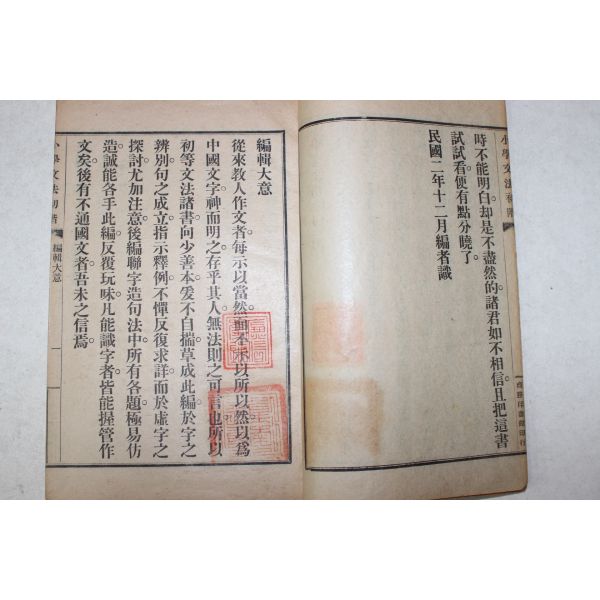 時不能明白。却是不盡然的。諸君如不相信。且把這書
試試看。便有點分曉了。
民國二年十二月編者識
編輯大意
從來教人作文者。每示以當然。而不示以所以然。以爲
中國文字。神而明之。存乎其人。無法則之可言也。所以
初等文法諸書。向少善本。爰不自揣。草成此編。於字之
辨別。句之成立。指示釋例。不憚反復求詳。而於虛字之
探討。尤加注意。後編聯字造句法中。所有各題。極易仿
造。誠能各手此編。反覆玩味。凡能識字者。皆能握管作
文矣。後有不通國文者。吾未之信焉。
小學文法初階
編輯大意
一
小學文法初階
商務印書館印行